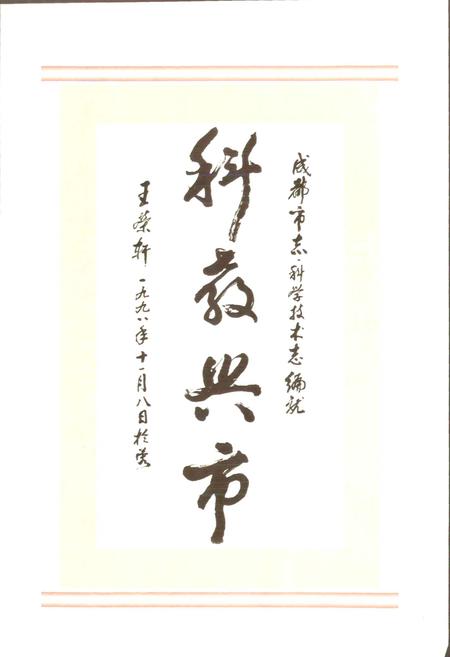 成都市志·科学技术志编就
科教兴市
王荣轩 一九九八年十一月八日於蓉